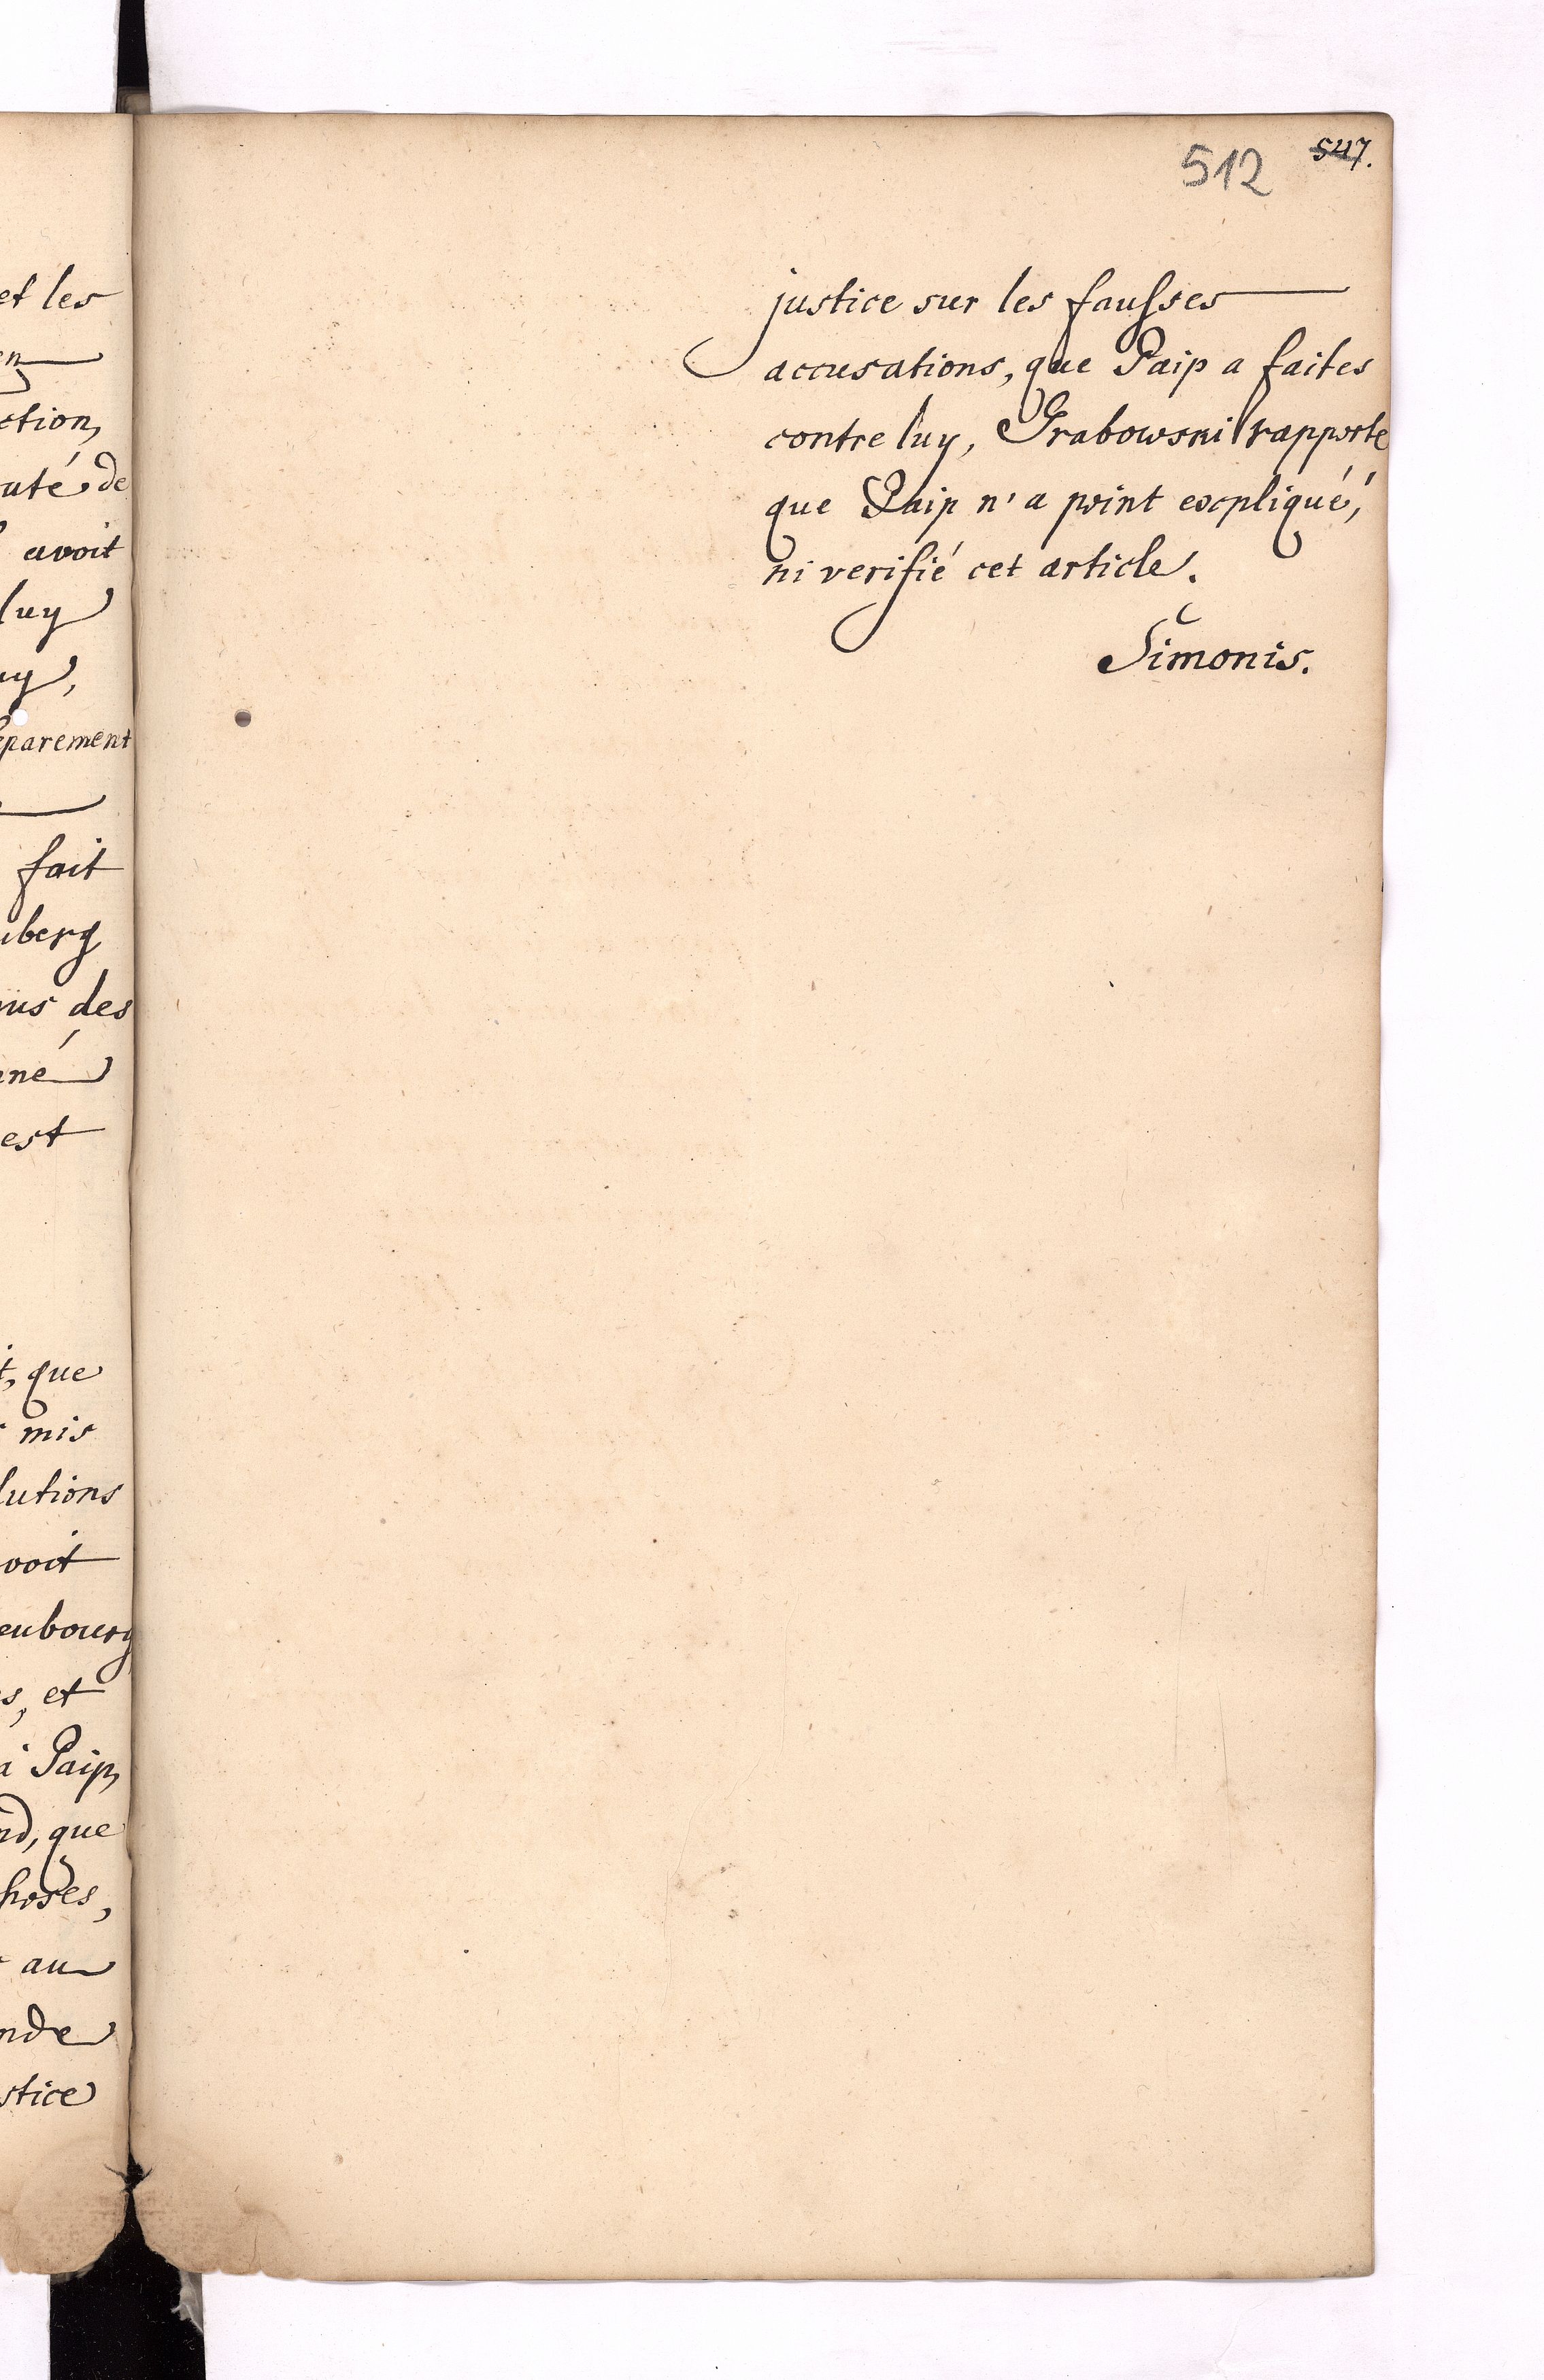 et les
en
ction,
uté de
avoit
luy
uy,
éparement
fait
uberg
ous des
né
est
t, que
mis
lutions
voit
eubourg
s, et
à Paip,
nd, que
hoses,
au
nde
stice
512 547.
justice sur les fausses
accusations, que Paip a faites
contre luy, Grabowski rapporte
que Paip n'a point expliqué,
ni verifié cet article.
Simonis.